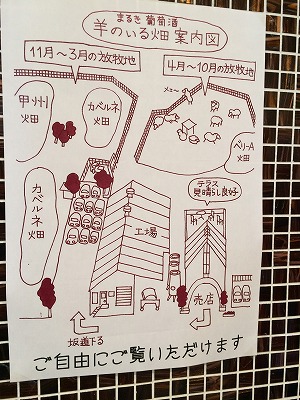 まるき葡萄酒
羊のいる畑案内図
11月〜3月の放牧地
4月〜10月の放牧地
メェ〜
甲州
畑
カベルネ
畑
ベリーA
畑
カベルネ
畑
テラス
見晴らし良好
工場
売店
坂道下る
ご自由にご覧いただけます